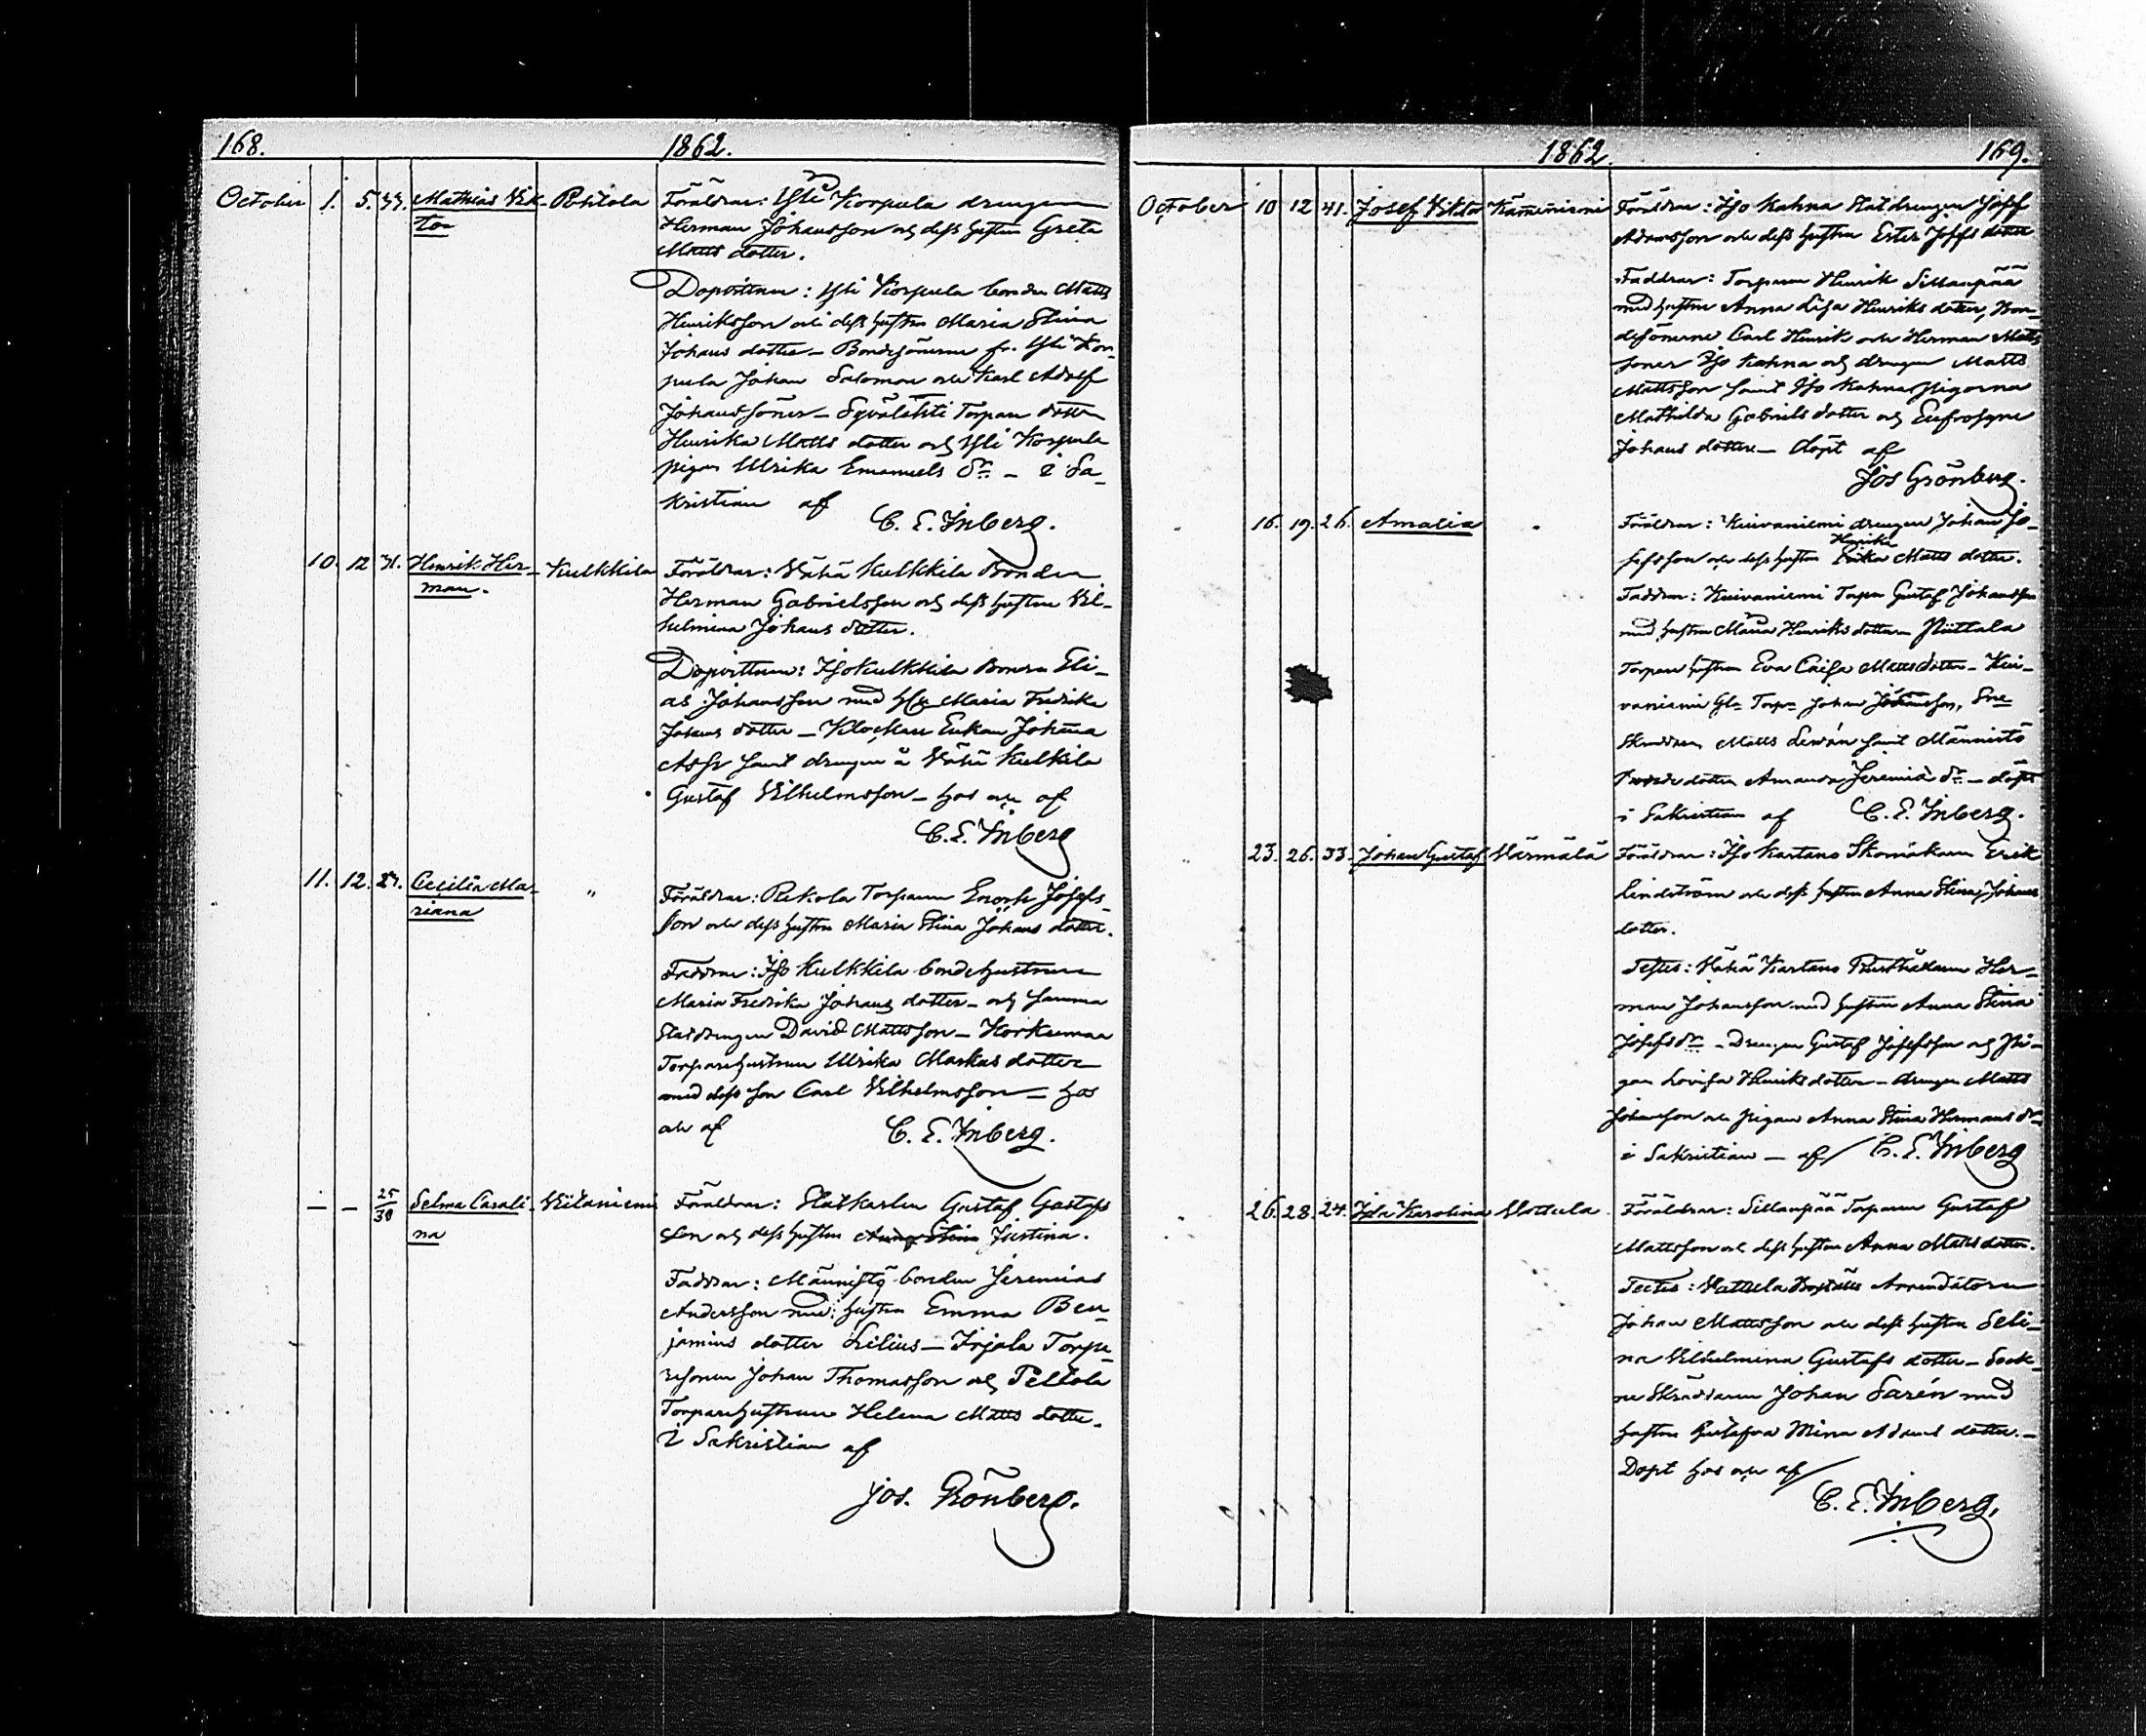 168. 1862.
October 1. 5. 33. Mathias Vik- Pohtola Föräldrar: Yli Korpula drengen
tor Herman Johansson och dess hustru Greta
Matts dotter.
Dopvittnen: Yli Korpula bonden Matts
Henriksson och dess hustru Maria Stina
Johans dotter – Bondesönerne fr. Yli Kor-
pula Johan Salomon och Karl Adolf
Johanssöner – Syvälahti Torpare dotter
Henrika Matts dotter och Yli Korpula
pigan Ulrika Emanuels dr – i Sa-
kristian af C. E. Inberg.
10. 12 31. Henrik Her- Kulkkila Föräldrar: Vähä Kulkkila Bonden
man. Herman Gabrielsson och dess hustru Vil-
helmina Johans dotter.
Dopvittnen: Iso Kulkkila Bonden Eli-
as Johansson med Maria Fredrika
Johans dotter – Klockare Enkan Johanna
samt drengen å Vähä Kulkila
Gustaf Vilhelmsson – hos af
C. E. Inberg
11. 12. 27. Cecilia Ma- " Föräldrar: Rekola Torparen Enock Josefs-
riana son och dess hustru Maria Stina Johans dotter.
Faddrar: Iso Kulkkila bondehustrun
Maria Fredrika Johans dotter – och samma
Statdrengen David Mattsson – Korkeemaa
Torparehustrun Ulrika Markus dotter
med dess son Carl Vilhelmsson – hos
af C. E. Inberg.
– – 25/30 Selma Carali- Viitaniemi Föräldrar: Statkarlen Gustaf Gustafs
na son och dess hustru Justina.
Faddrar: Männistö bonden Jeremias
Andersson med hustru Emma Ben-
jamins dotter Lilius – Irjala Torpa-
resonen Johan Thomasson och Peltola
Torparehustrun Helena Matts dotter.
i Sakristian af
Jos. Grönberg.
1862. 169.
October 10 12 41. Josef Viktor Kämmäniemi Föräldrar: Iso Kahna Statdrengen Josef
Adamsson och dess hustru Ester Josefs dotter
Faddrar: Torparen Henrik Sillanpää
med hustru Anna Lisa Henriks dotter, Bon-
desönerne Carl Henrik och Herman Matts
söner Iso Kahna och drengen Matts
Mattsson samt Iso Kahna pigorna
Mathilda Gabriels dotter och Eufrosyne
Johans dotter – döpt af
Jos Grönberg.
16. 19. 26. Amalia " Föräldrar: Kuivaniemi drengen Johan Jo-
sefsson och dess hustru Henrika Matts dotter.
Faddrar: Kuivaniemi Torp. Gustaf Johansson
med hustru Maria Henriks dotter – Piittala
Torpare hustrun Eva Caisa Matts dotter – Kui-
vaniemi Torp. Johan Johansson,
Matts samt Männistö
dotter Amanda Jeremias dr – döpt
i Sakristian af C. E. Inberg.
" 23. 26. 33. Johan Gustaf Värmälä Föräldrar: Iso Kartano Skomakaren Erik
Lindström och dess hustru Anna Stina Johans
dotter.
Testes: Vähä Kartano Rusthållaren Her-
man Johansson med hustru Anna Stina
Josefs dr – Drengen Gustaf Josefsson och Pi-
gan Lovisa Henriks dotter – drengen Matts
Johansson och pigan Anna Stina Hermans dr
i Sakristian – af C. E. Inberg
26. 28. 24. Ida Karolina Vattula Föräldrar: Sillanpää Torparen Gustaf
Mattsson och dess hustru Anna Matts dotter.
Testes: Vattula Arrendatorn
Johan Mattsson och dess hustru Seli-
na Vilhelmina Gustafs dotter – Sock-
ne Skräddaren Johan Sarén med
hustru Gustafva Mina Adams dotter. –
Döpt hos af
C. E. Inberg.